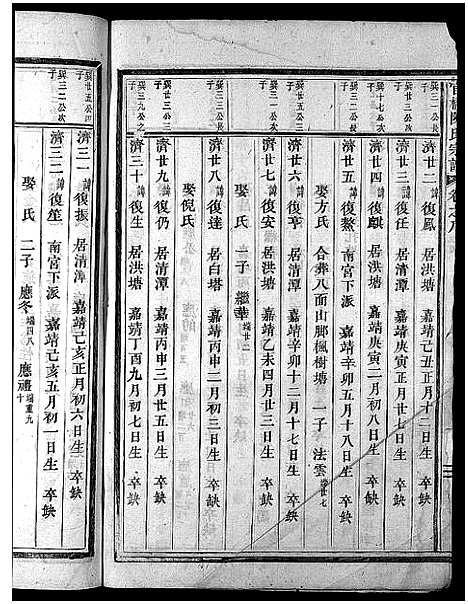 陳氏宗譜 卷之八
巽三一公長子
濟廿二 諱復鳳 居清潭 嘉靖己丑正月十二日生 卒缺
巽廿三公次子
濟廿三 諱復任 居清潭 嘉靖庚寅正月廿七日生 卒缺
巽十七公次子
濟廿四 諱復麒 居洪塘 嘉靖庚寅二月初八日生 卒缺
濟廿五 諱復鰲 南宮下派 嘉靖辛卯五月十八日生 卒缺
娶方氏 合葬八面山脚楓樹塘 一子 法雲 端廿七
濟廿六 諱復亨 居清潭 嘉靖辛卯十二月十七日生 卒缺
濟廿七 諱復安 居洪塘 嘉靖乙未四月廿三日生 卒缺
娶 氏 一子 繼華 端廿二
巽廿三公長子
濟廿八 諱復達 居白塔 嘉靖丙申三月初二日生 卒缺
濟廿九 諱復仍 居洪塘 嘉靖丙申三月廿五日生 卒缺
娶倪氏
巽三九公之子
濟三十 諱復生 居洪塘 嘉靖丁酉九月初七日生 卒缺
巽廿五公四子
濟三一 諱復振 居清潭 嘉靖己亥正月初六日生 卒缺
巽三二公次子
濟三二 諱復笙 南宮下派 嘉靖己亥五月初一日生 卒缺
娶 氏 二子 應冬 端四八 應禮 端重九十